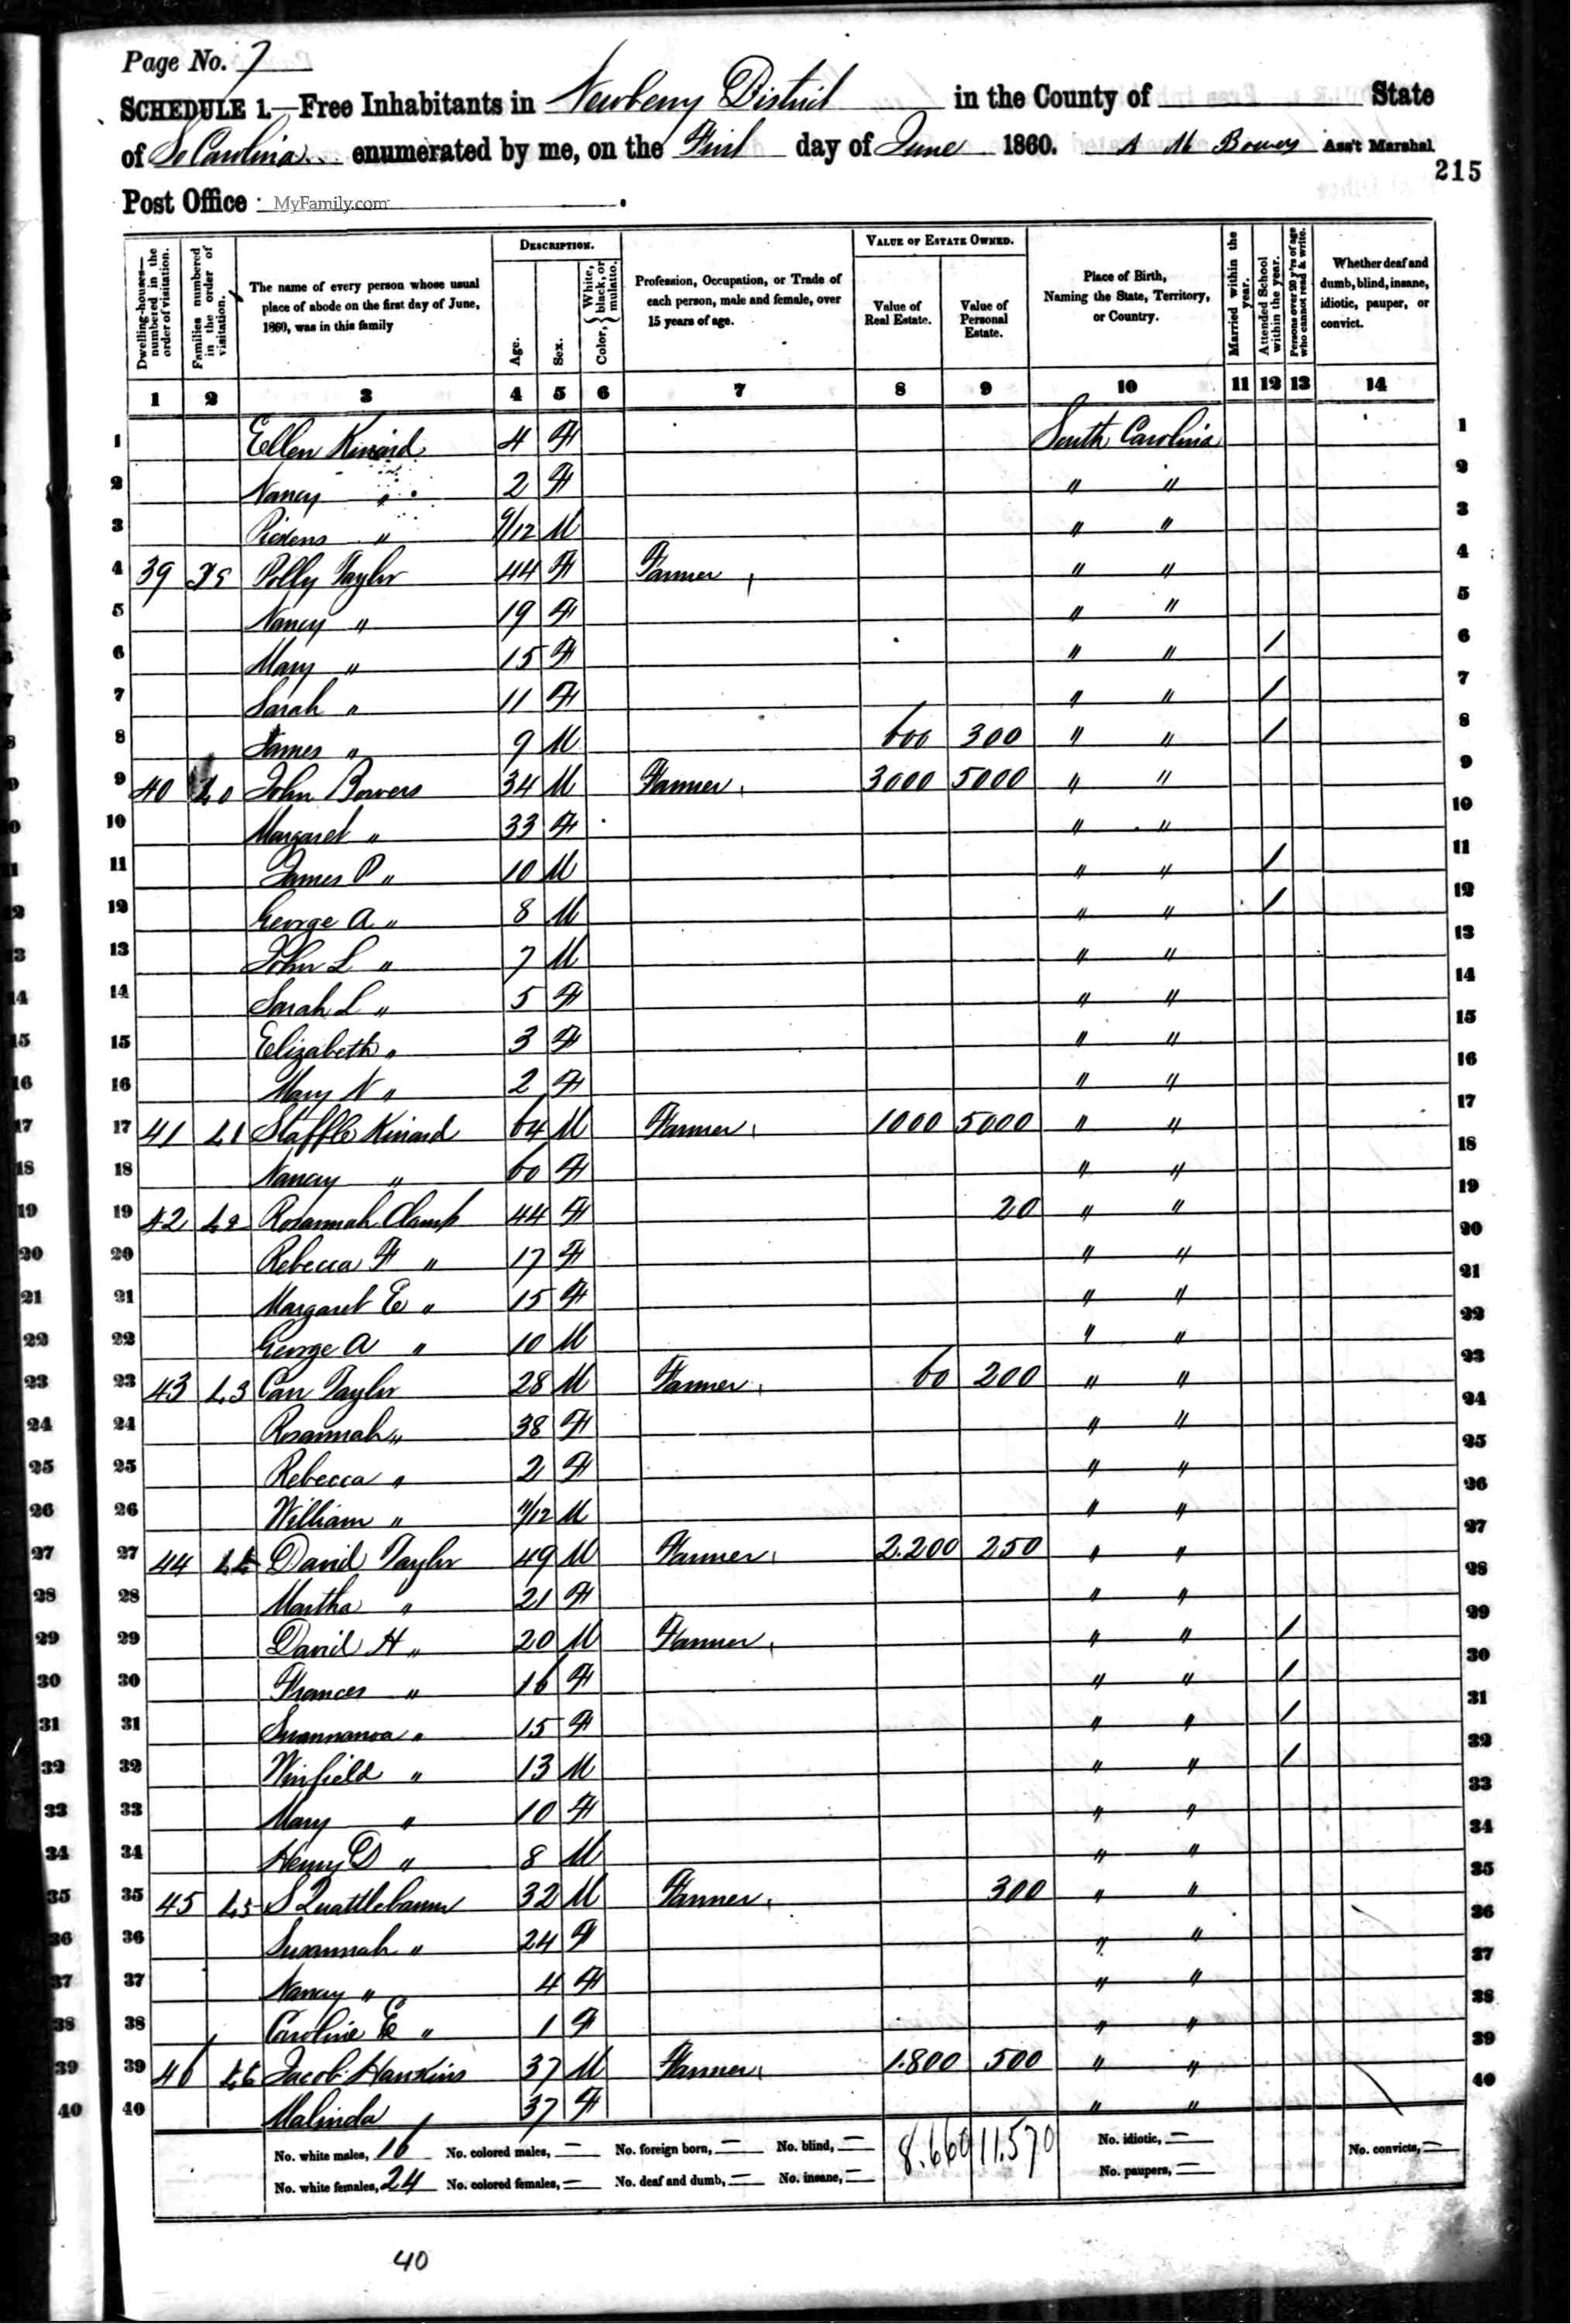 Page No. 7
SCHEDULE 1.—Free Inhabitants in Newberry District in the County of State
of So Carolina enumerated by me, on the First day of June 1860. A M Bowers Ass't Marshal.
215
Post Office MyFamily.com
Dwelling-houses—numbered in the order of visitation.
Families numbered in the order of visitation.
The name of every person whose usual place of abode on the first day of June, 1860, was in this family
DESCRIPTION.
Age.
Sex.
Color, { White, black, or mulatto.
Profession, Occupation, or Trade of each person, male and female, over 15 years of age.
VALUE OF ESTATE OWNED.
Value of Real Estate.
Value of Personal Estate.
Place of Birth, Naming the State, Territory, or Country.
Married within the year.
Attended School within the year.
Persons over 20 y'rs of age who cannot read & write.
Whether deaf and dumb, blind, insane, idiotic, pauper, or convict.
1 2 3 4 5 6 7 8 9 10 11 12 13 14
1 Ellen Kinard 4 F South Carolina 1
2 Nancy " 2 F " " 2
3 Pickens " 9/12 M " " 3
4 39 39 Polly Taylor 44 F Farmer " " 4
5 Nancy " 19 F " " 5
6 Mary " 15 F " " / 6
7 Sarah " 11 F " " / 7
8 James " 9 M 600 300 " " / 8
9 40 40 John Bowers 34 M Farmer 3000 5000 " " 9
10 Margaret " 33 F " " 10
11 James P " 10 M " " / 11
12 George A " 8 M " " / 12
13 John L " 7 M " " 13
14 Sarah L " 5 F " " 14
15 Elizabeth " 3 F " " 15
16 Mary N " 2 F " " 16
17 41 41 Staffle Kinard 64 M Farmer 1000 5000 " " 17
18 Nancy " 60 F " " 18
19 42 42 Rosannah Clamp 44 F 20 " " 19
20 Rebecca F " 17 F " " 20
21 Margaret E " 15 F " " 21
22 George A " 10 M " " 22
23 43 43 Can Taylor 28 M Farmer 60 200 " " 23
24 Rosannah " 38 F " " 24
25 Rebecca " 2 F " " 25
26 William " 11/12 M " " 26
27 44 44 David Taylor 49 M Farmer 2.200 250 " " 27
28 Martha " 21 F " " 28
29 David H " 20 M Farmer " " / 29
30 Frances " 16 F " " / 30
31 Suannanoa " 15 F " " / 31
32 Winfield " 13 M " " / 32
33 Mary " 10 F " " 33
34 Henry D " 8 M " " 34
35 45 45 S Quattlebaum 32 M Farmer 300 " " 35
36 Susannah " 24 F " " 36
37 Nancy " 4 F " " 37
38 Caroline E " 1 F " " 38
39 46 46 Jacob Hawkins 37 M Farmer 1.800 500 " " 39
40 Malinda " 37 F " " 40
No. white males, 16 No. colored males, — No. foreign born, — No. blind, — 8.660 11.570 No. idiotic, — No. convicts, —
No. white females, 24 No. colored females, — No. deaf and dumb, — No. insane, — No. paupers, —
40